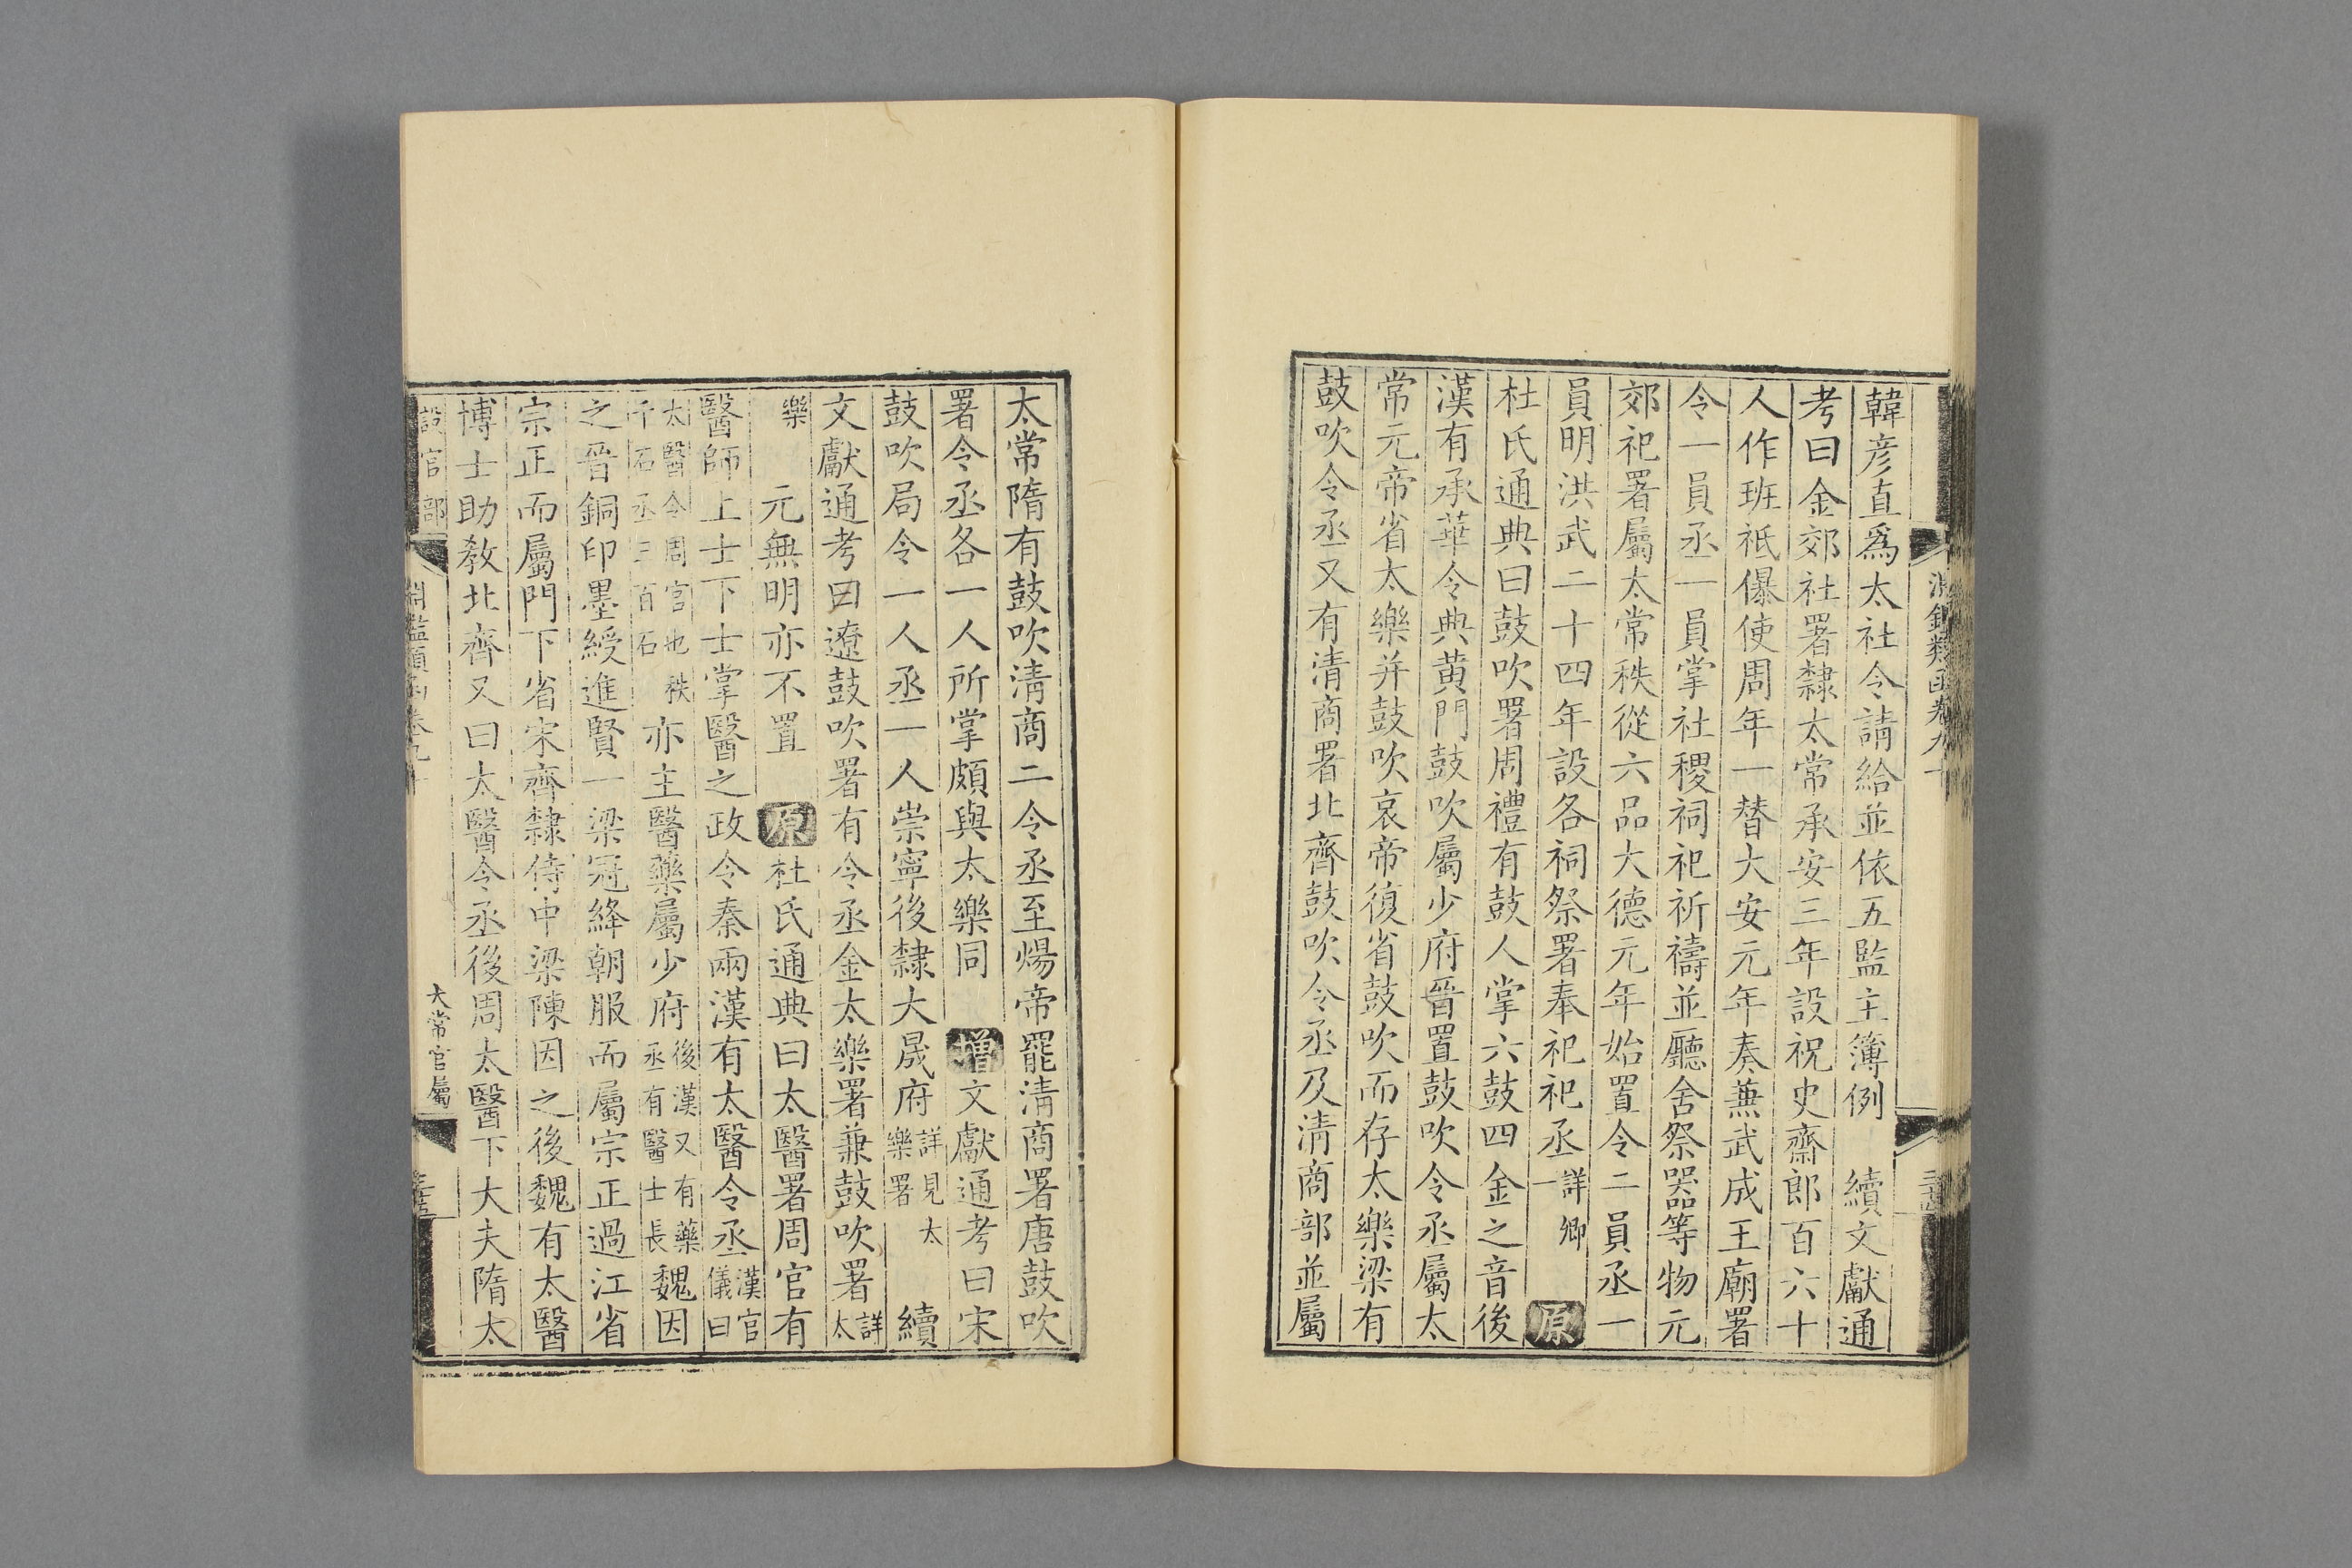 韓彦直爲太社令請給並依五監主簿例　續文獻通
考曰金郊社署隸太常承安三年設祝史齋郎百六十
人作班祗儤使周年一替大安元年奏兼武成王廟署
令一員丞一員掌社稷祠祀祈禱並廳舍祭器等物元
郊祀署屬太常秩從六品大德元年始置令二員丞一
員明洪武二十四年設各祠祭署奉祀祀丞詳卿一　原
杜氏通典曰鼓吹署周禮有鼓人掌六鼓四金之音後
漢有承華令典黄門鼓吹屬少府晉置鼓吹令丞屬太
常元帝省太樂并鼓吹哀帝復省鼓吹而存太樂梁有
鼓吹令丞又有清商署北齊鼓吹令丞及清商部並屬
太常隋有鼓吹清商二令丞至煬帝罷清商署唐鼓吹
署令丞各一人所掌頗與太樂同　增文獻通考曰宋
鼓吹局令一人丞一人崇寧後隸大晟府詳見太樂署　續
文獻通考曰遼鼓吹署有令丞金太樂署兼鼓吹署詳太
樂　元無明亦不置　原杜氏通典曰太醫署周官有
醫師上士下士掌醫之政令秦兩漢有太醫令丞漢官儀曰
太醫令周官也秩千石丞三百石亦主醫藥屬少府後漢又有藥丞有醫士長魏因
之晉銅印墨綬進賢一梁冠絳朝服而屬宗正過江省
宗正而屬門下省宋齊隸侍中梁陳因之後魏有太醫
博士助教北齊又曰太醫令丞後周太醫下大夫隋太
設官部　淵鑑類函卷九十　太常官屬